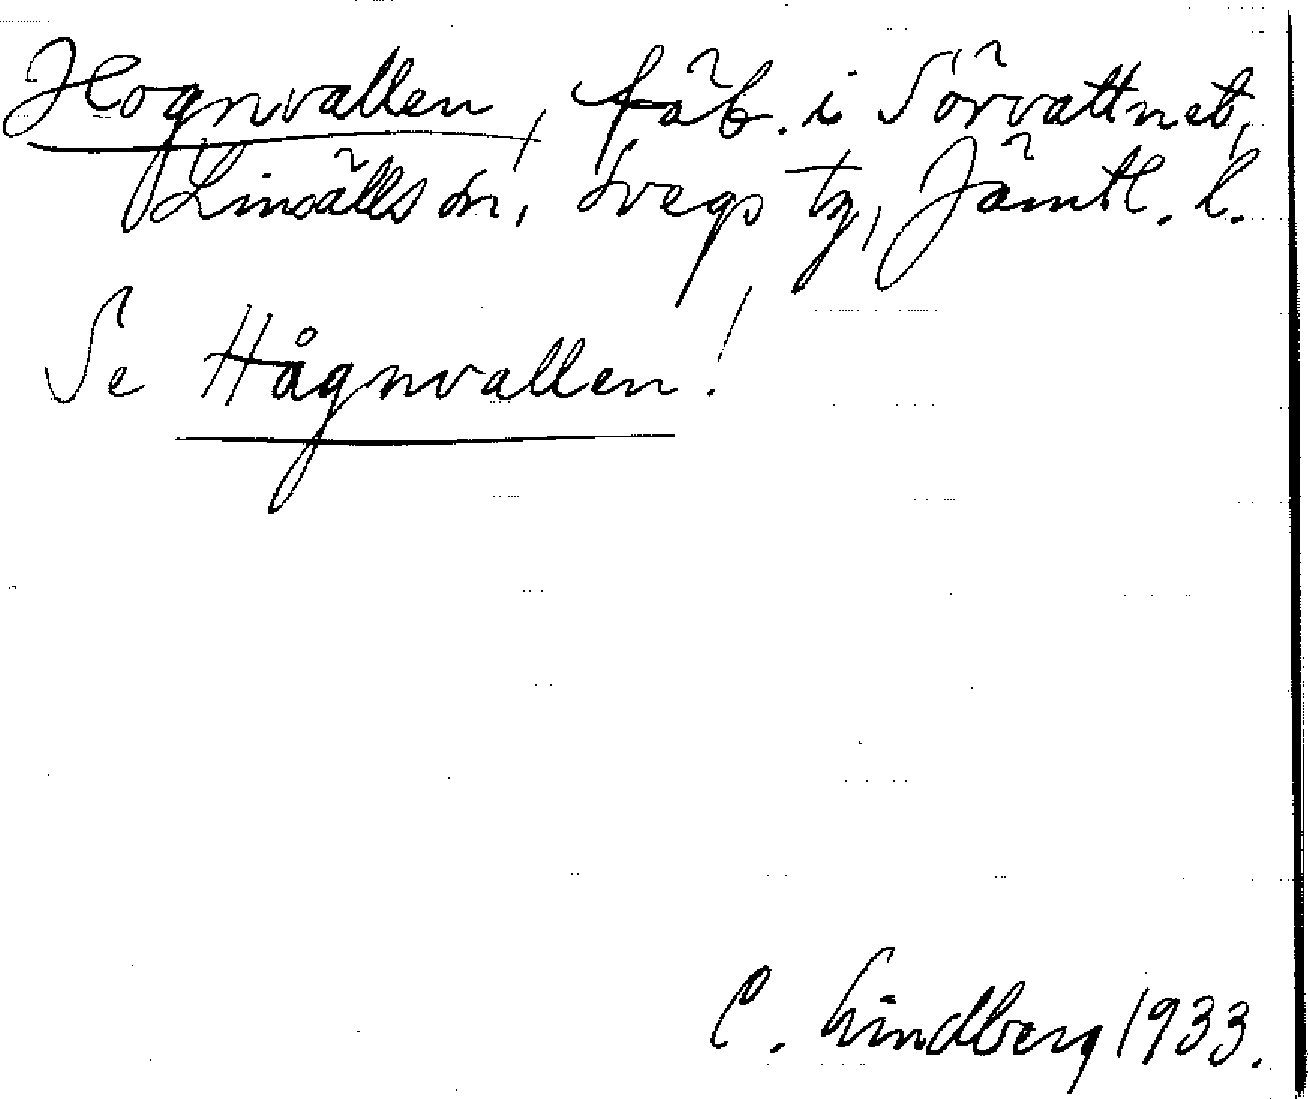 Hognvallen, fäb. i Sörvattnet,
Linsälls sn, Svegs tg, Jämtl. l.
Se Hågnvallen!
C. Lindberg 1933.